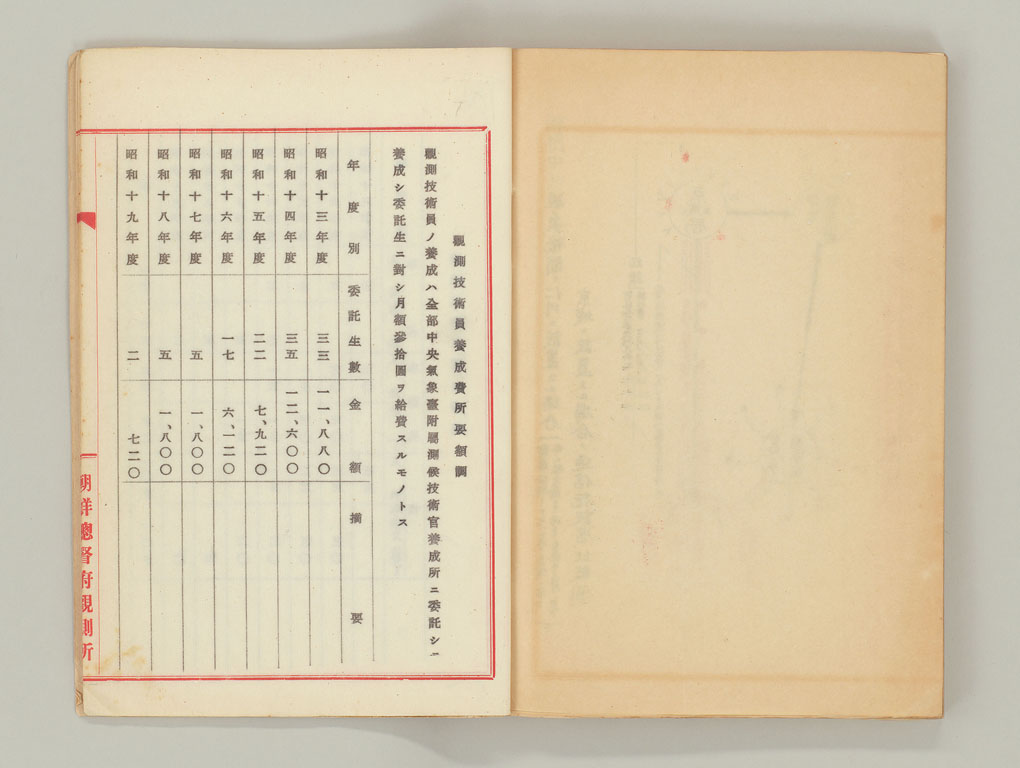 觀測技術員養成費所要額調
觀測技術員ノ養成ハ全部中央氣象臺附屬測候技術官養成所ニ委託シテ
養成シ委託生ニ對シ月額參拾圓ヲ給費スルモノトス
年度別 委託生數 金額 摘要
昭和十三年度 三三 一一、八八〇
昭和十四年度 三五 一二、六〇〇
昭和十五年度 二二 七、九二〇
昭和十六年度 一七 六、一二〇
昭和十七年度 五 一、八〇〇
昭和十八年度 五 一、八〇〇
昭和十九年度 二 七二〇
朝鮮總督府觀測所